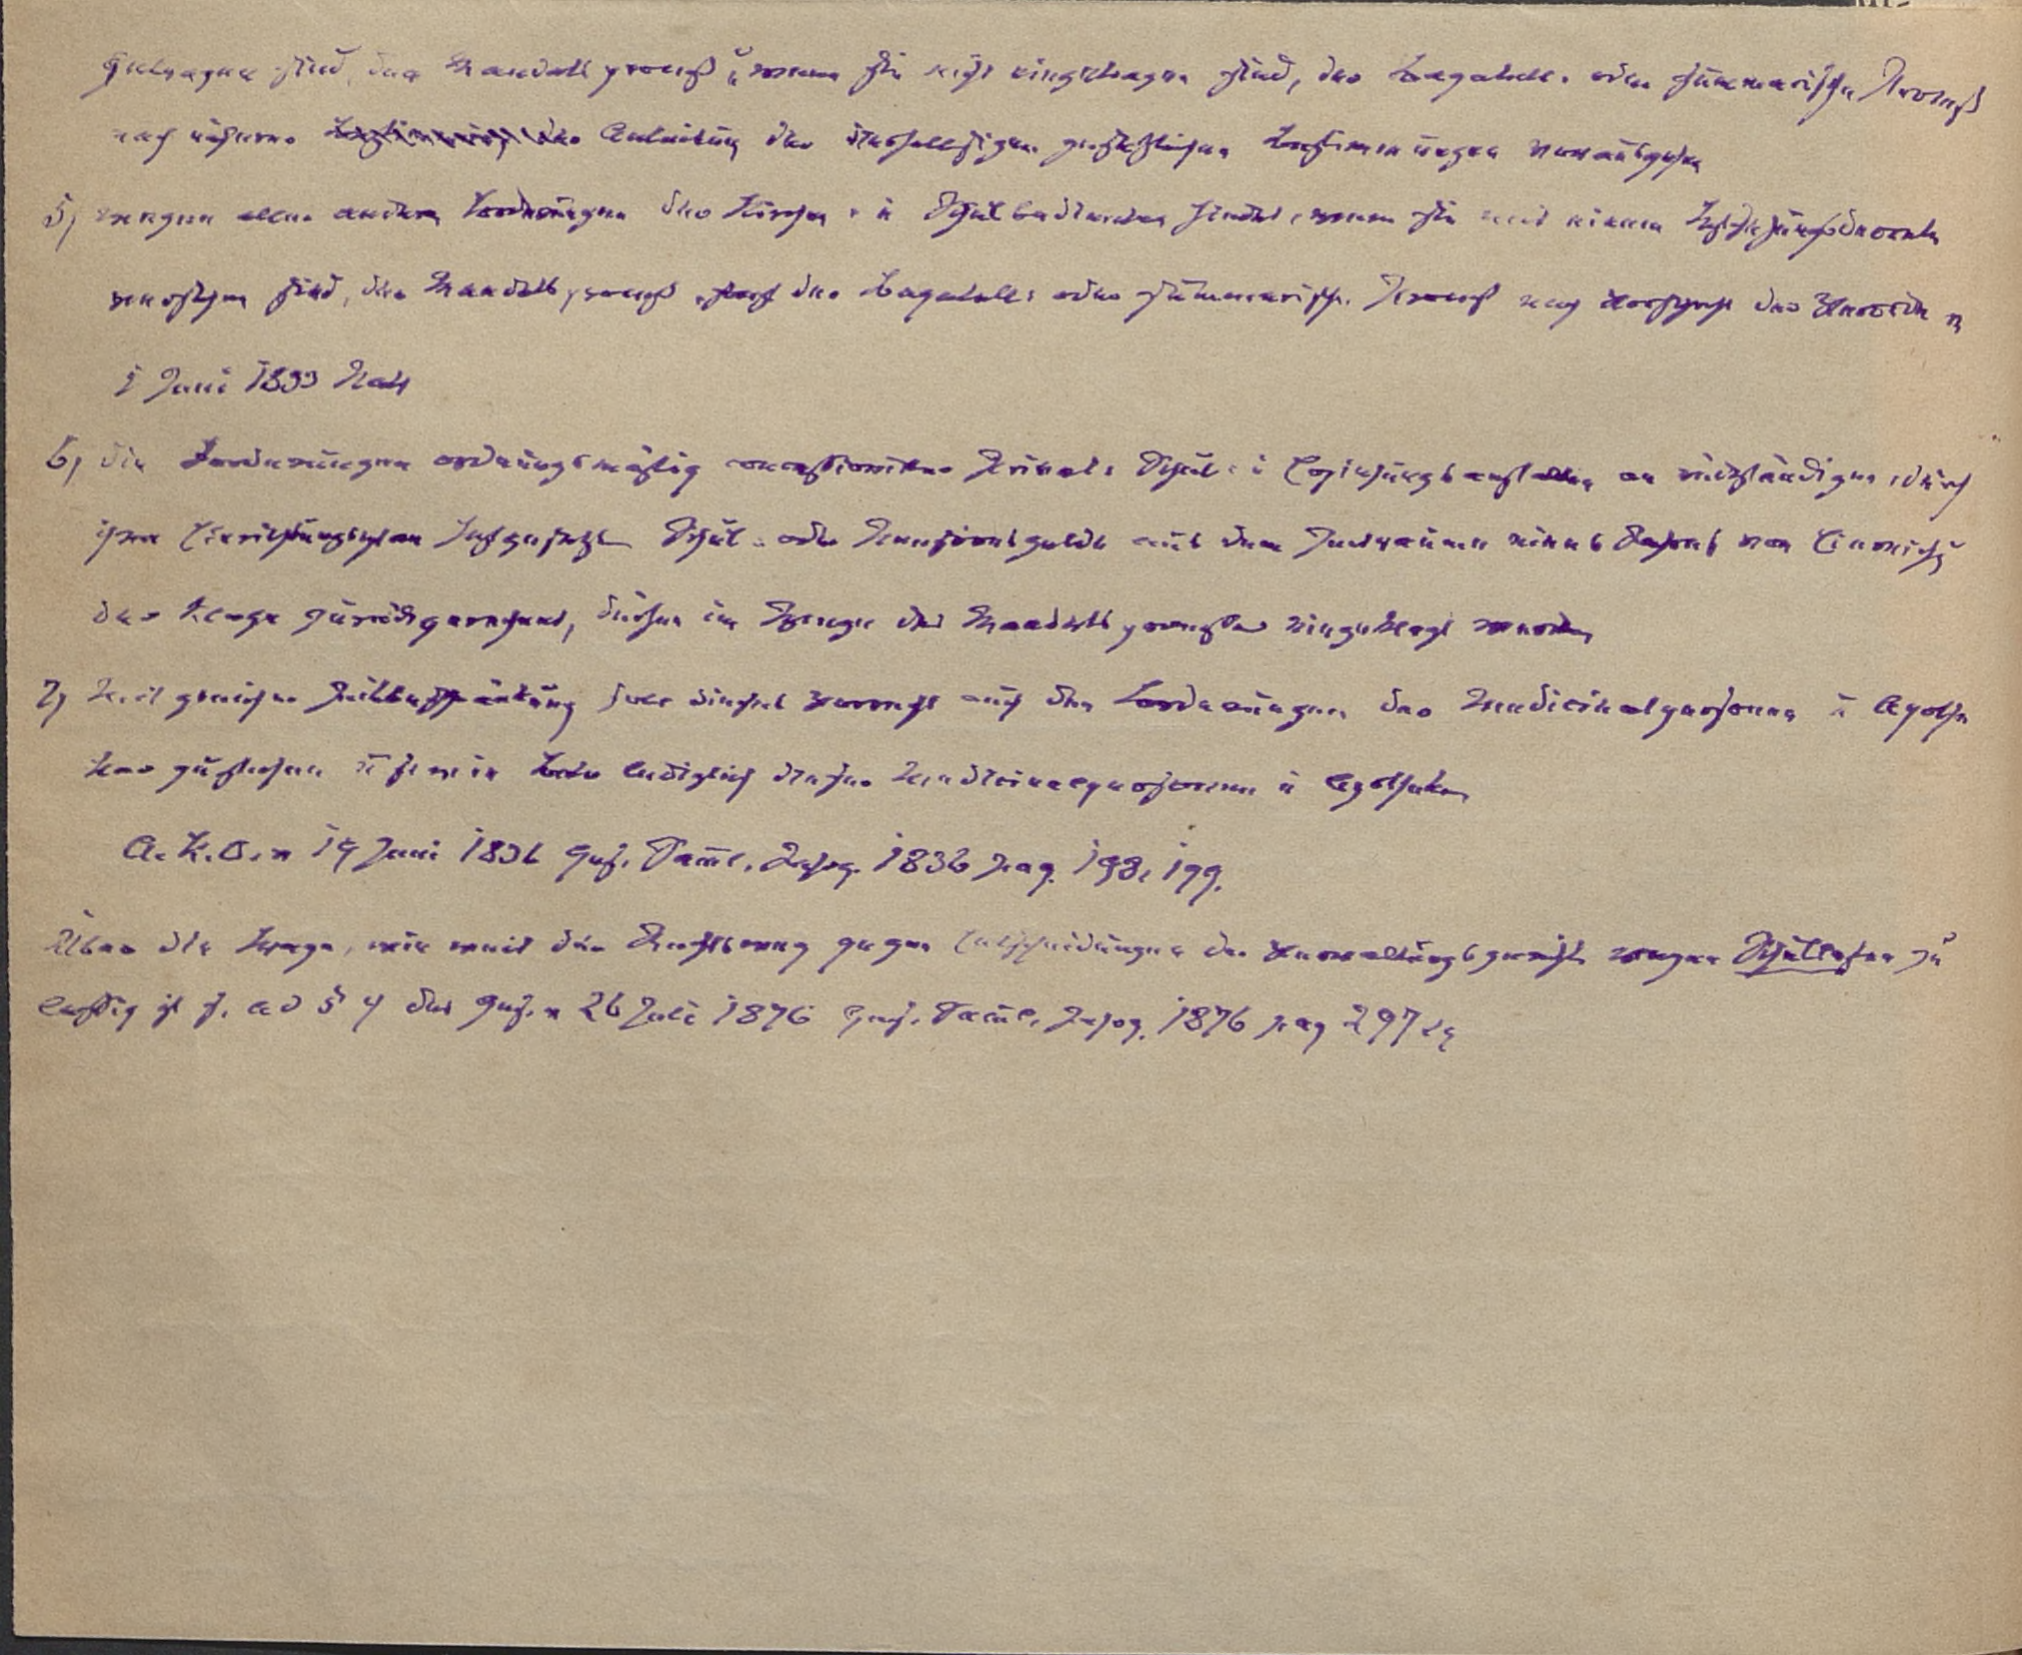 getragen sind, den Mandatsprozeß u, wenn sie nicht eingetragen sind, der Bagatell- oder summarische Prozeß
nach näherer Anleitung der diesfallsigen gesetzlichen Bestimmungen vorausgehen
5) wegen aller andern Forderungen der Kirchen- u Schulbedienten findet, wenn sie mit einem Zahlungsverbote
versehen sind, der Mandatsprozeß, sonst der Bagatell- oder summarische Prozeß nach Vorschrift der Verordn v
1 Juni 1833 statt
6) die Forderungen ordnungsmäßig concessionirter Privat- Schul- u Erziehungsanstalten an rückständigen, durch
ihren Einrichtungsplan festgesetzten Schul- oder Pensionsgelde aus dem Zeitraume eines Jahres von Einreichg
der Klage zurückgerechnet, dürfen im Wege des Mandatsprozesses eingeklagt werden
7) Mit gleicher Zeitbeschränkung soll dieses Vorrecht auch den Forderungen der Medicinalpersonen u Apothe
ker zustehen u ferner in lediglich dieser Medicinalpersonen u Apotheker
A. K. O. v 19 Juni 1836 Ges. Saml. Jahrg. 1836 pag. 198, 199.
Über die Frage, wie weit der Rechtsweg gegen Entscheidungen der Verwaltungsgerichte wegen Schullasten zu
lässig ist s. ad § 4 des Ges. v 26 Juli 1876 Ges. Saml. Jahrg. 1876 pag 297 sq